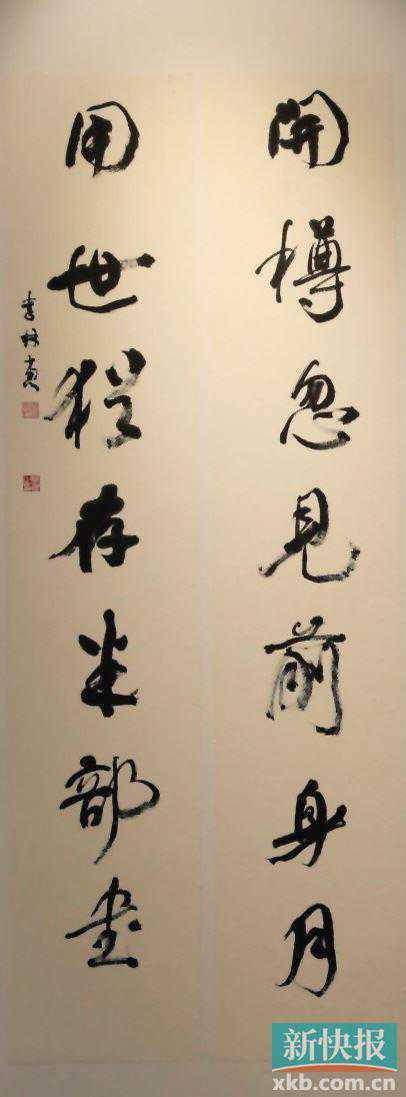 開樽忽見前身月
用世猶存半部書
新快报
xkb.com.cn